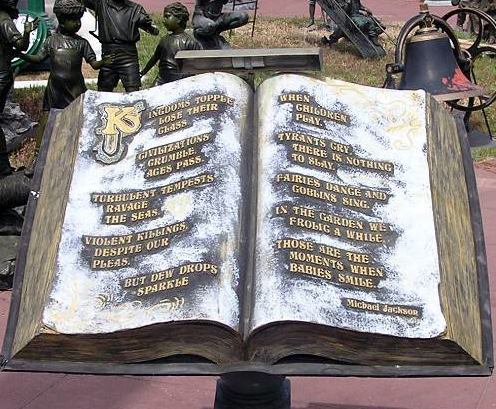 KINGDOMS TOPPLE
LOSE THEIR
CLASS
CIVILIZATIONS
CRUMBLE,
AGES PASS.
TURBULENT TEMPESTS
RAVAGE
THE SEAS.
VIOLENT KILLINGS,
DESPITE OUR
PLEAS.
BUT DEW DROPS
SPARKLE
WHEN
CHILDREN
PLAY.
TYRANTS CRY
THERE IS NOTHING
TO SLAY.
FAIRIES DANCE AND
GOBLINS SING.
IN THE GARDEN WE
FROLIC A WHILE.
THOSE ARE THE
MOMENTS WHEN
BABIES SMILE.
Michael Jackson